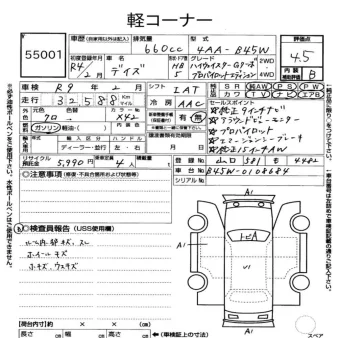 軽コーナー
55001
車歴
排気量
660cc
型式
4AA-B45W
評価点
4.5
初度登録年月
R4/2月
車名
デイズ
ドア 形状
HB
5
グレード
ハイウェイスターGターボ
プロパイロットエディション
2WD
4WD
内装
補助評価
B
車検
R9年2月
シフト
IAT
純正
SR
AW
PS
PW
カワ
TV
ナビ
走行
32,588
冷房
AAC
セールスポイント
純正9インチナビ
アラウンドビューモニター
プロパイロット
エマージェンシーブレーキ
純正15インチAW
外元色
色
クロ
カラーNo
X42
新車時保証書
有
無
燃料
ガソリン
軽油
輸入区分
ハンドル
ディーラー・並行
左・右
記録簿有効期限
年 月
リサイクル預託金
5,990円
乗車定員
4人
積載量
登録No
山口 581 も 4482
車台No
B45W-0108684
シリアルNo
○注意事項(修復・不具合箇所および状態等)
○検査員報告(USS使用欄)
ルーム内 キズ、スレ
ホイールキズ
小キズ、ウスキズ
A1
A1
トビA
A1
【荷台内寸】約 × × (cm)
スペア
長さ cm 幅 cm 高さ cm ←(車検証上の寸法)